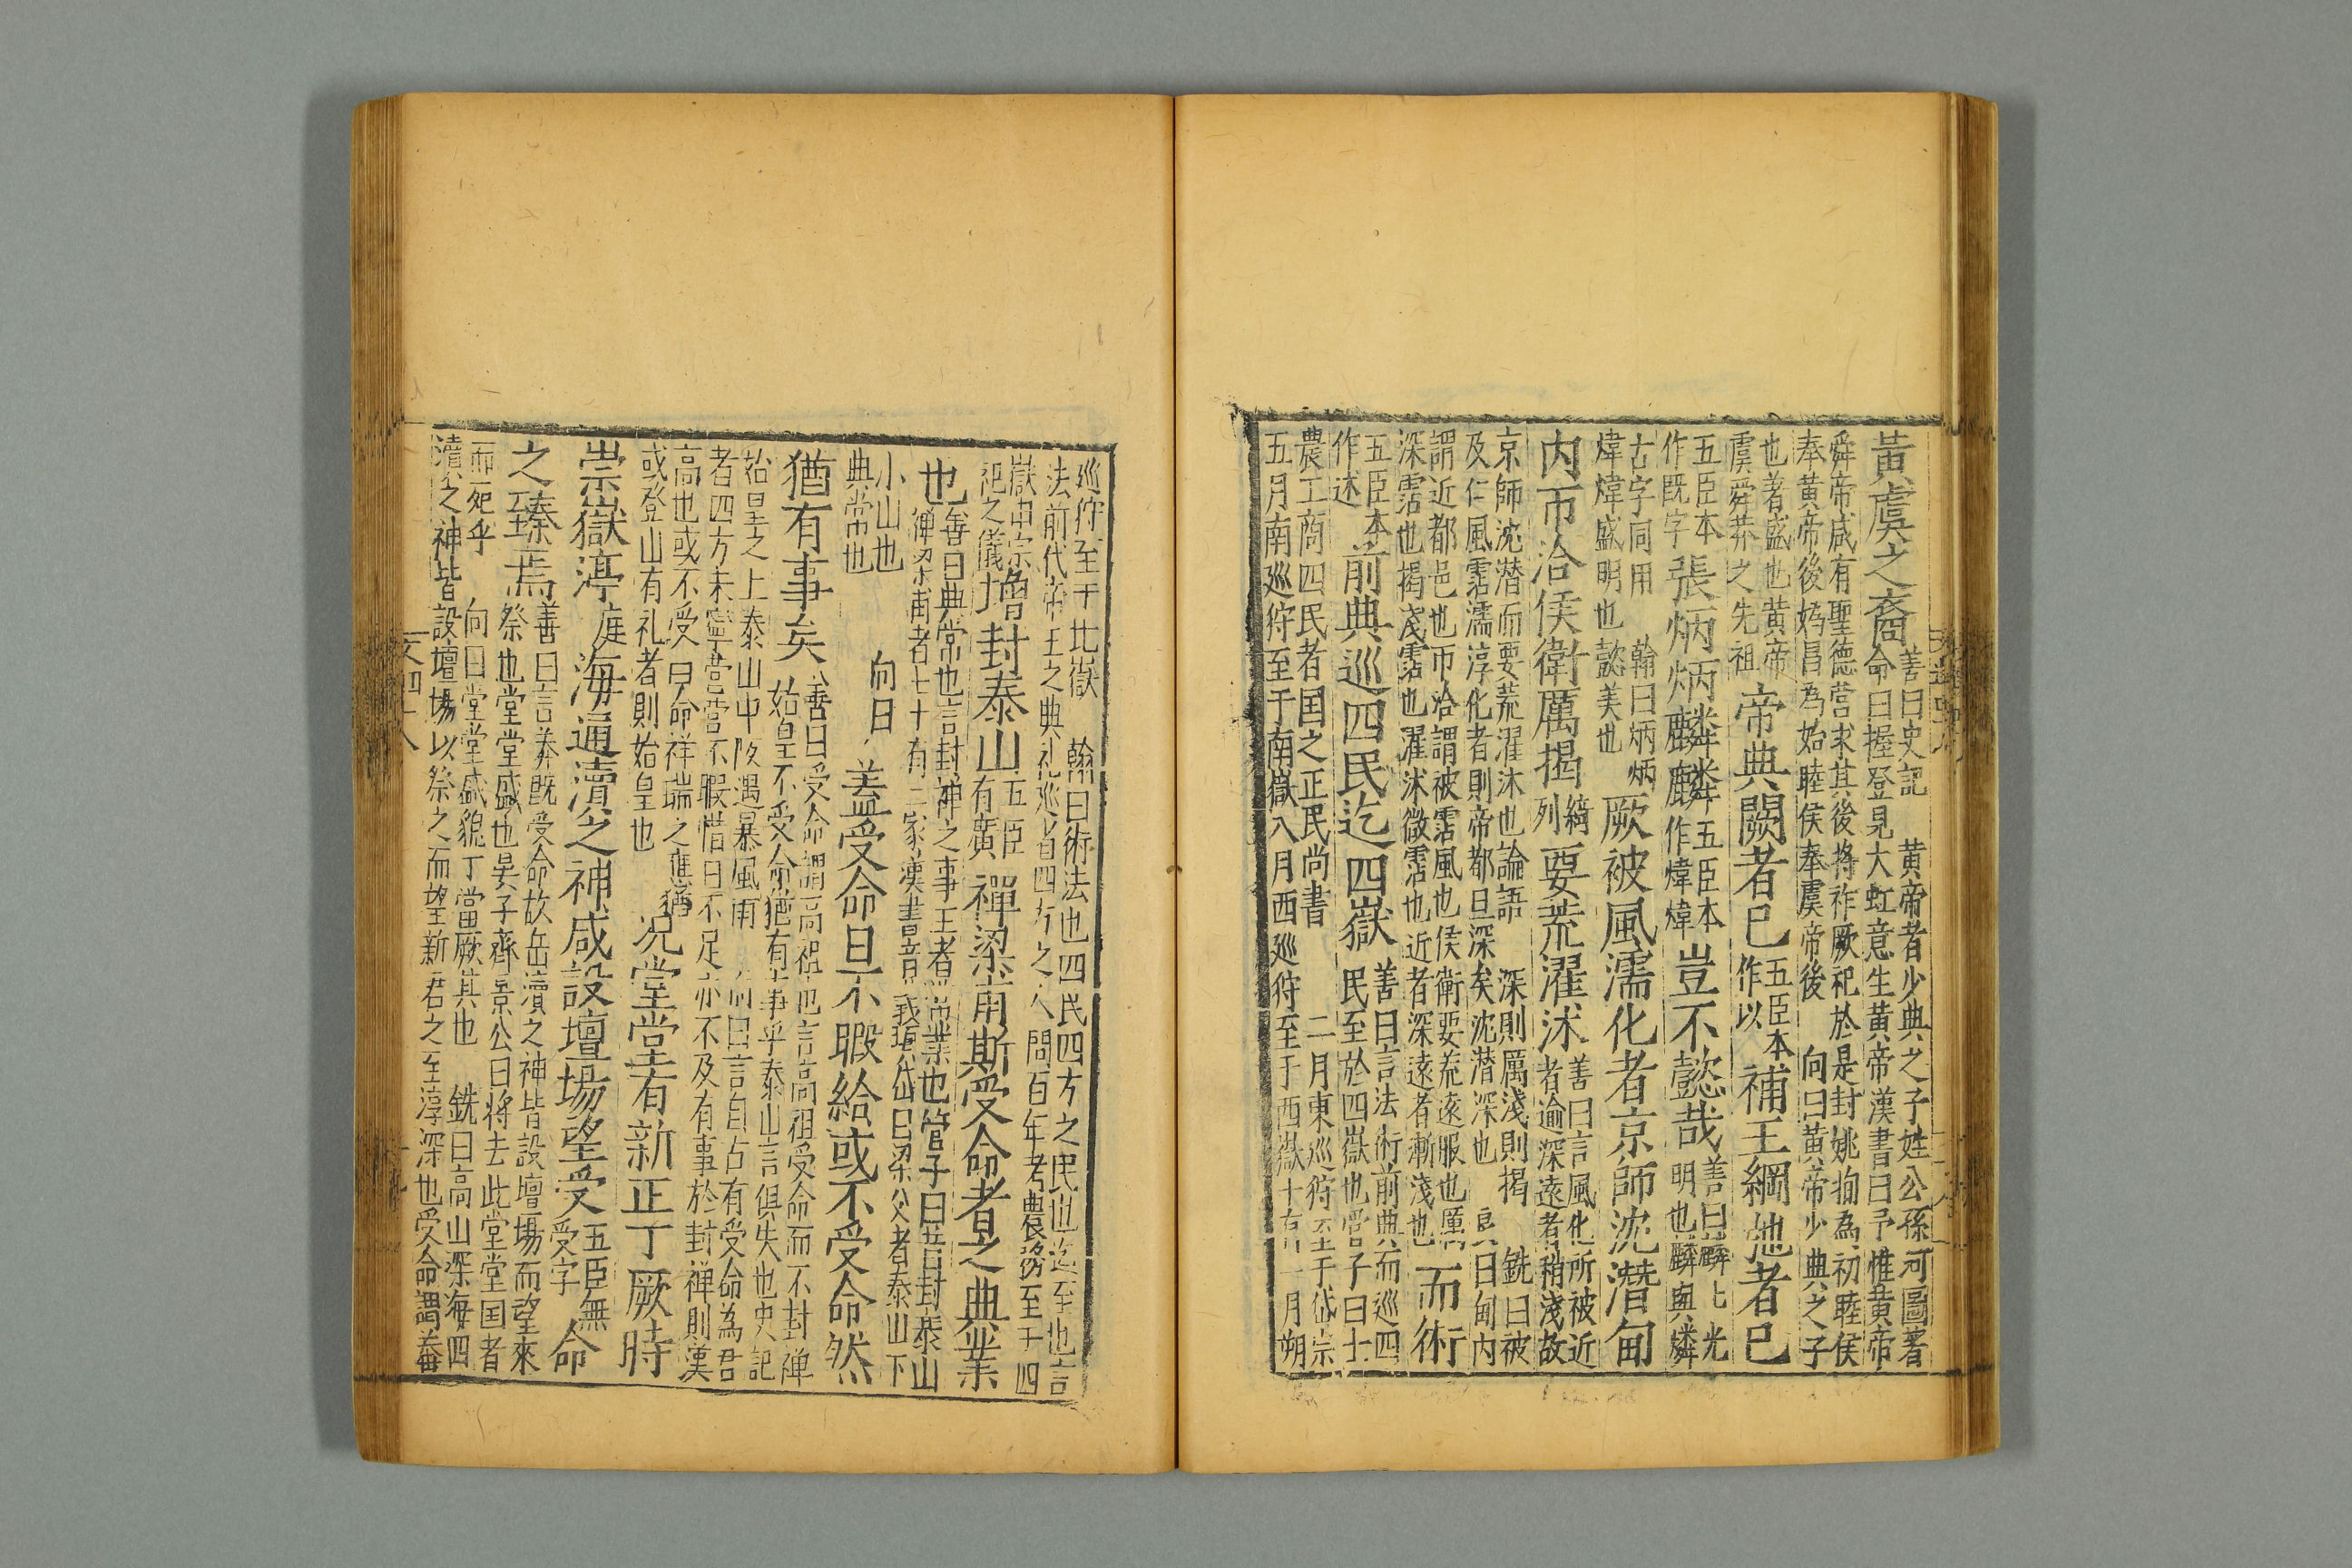 黃虞之裔
善曰史記 黄帝者少典之子姓公孫河圖著
命曰握登見大虹意生黃帝漢書曰予惟黄帝
舜帝咸有聖德營求其後將祚厥祀於是封姚恂為初睦侯
奉黄帝後媯昌為始睦侯奉虞帝後 向曰黄帝少典之子
也著盛也黄帝
虞舜莽之先祖
帝典闕者已
五臣本
作以
補王綱弛者已
五臣本
作既字
張炳炳麟麟
五臣本
作煒煒
豈不懿哉
善曰麟匕光
明也麟與燐
古字同用 翰曰炳炳
煒煒盛明也懿美也
厥被風濡化者京師沈潛甸
内帀洽侯衛厲揭
綺
列
要荒濯沭
善曰言風化所被近
者逾深遠者稍淺故
京師沈潜而要荒濯沐也論語 深則厲淺則揭 銑曰被
及仁風霑濡淳化者則帝都旦深矣沈潜深也 良曰甸内
謂近都邑也帀洽謂被霑風也侯衛要荒遠服也厲
深霑也揭淺霑也濯沭微霑也近者深遠者漸淺也
而術
五臣本
作述
前典巡四民迄四嶽
善曰言法術前典而巡四
民至於四嶽也管子曰士
農工商四民者国之正民尚書 二月東巡狩至于岱宗
五月南巡狩至于南嶽八月西巡狩至于西嶽十有一月朔
巡狩至于北嶽 翰曰術法也四民四方之民也迄至也言
法前代帝王之典礼巡省四方之人問百年考農務至于四
嶽申宗
祀之儀
增封泰山
五臣
有廣
禪梁甫斯受命者之典業
也
善曰典常也言封禅之事王者常業也管子曰昔封泰山
禅梁甫者七十有二家漢書音義項岱曰梁父者泰山下
小山也 向曰
典常也
蓋受命日不暇給或不受命然
猶有事矣
善曰受命謂高祖也言高祖受命而不封禅
始皇不受命猶有事乎泰山言俱失也史記
始皇之上泰山中阪遇暴風雨 向曰言自古有受命為君
者四方未寧營營不暇惜日不足亦不及有事於封禅則漢
高也或不受曰命祥瑞之應猶
或登山有礼者則始皇也
况堂堂有新正丁厥時
崇嶽渟
庭
海通瀆之神咸設壇場望受
五臣無
受字
命
之臻焉
善曰言莽既受命故岳瀆之神皆設壇場而望來
祭也堂堂盛也晏子齊景公曰将去此堂堂国者
而死乎 向曰堂堂盛貌丁當厥其也 銑曰高山深海四
瀆之神皆設壇場以祭之而望新君之至渟深也受命謂莽
文四十八